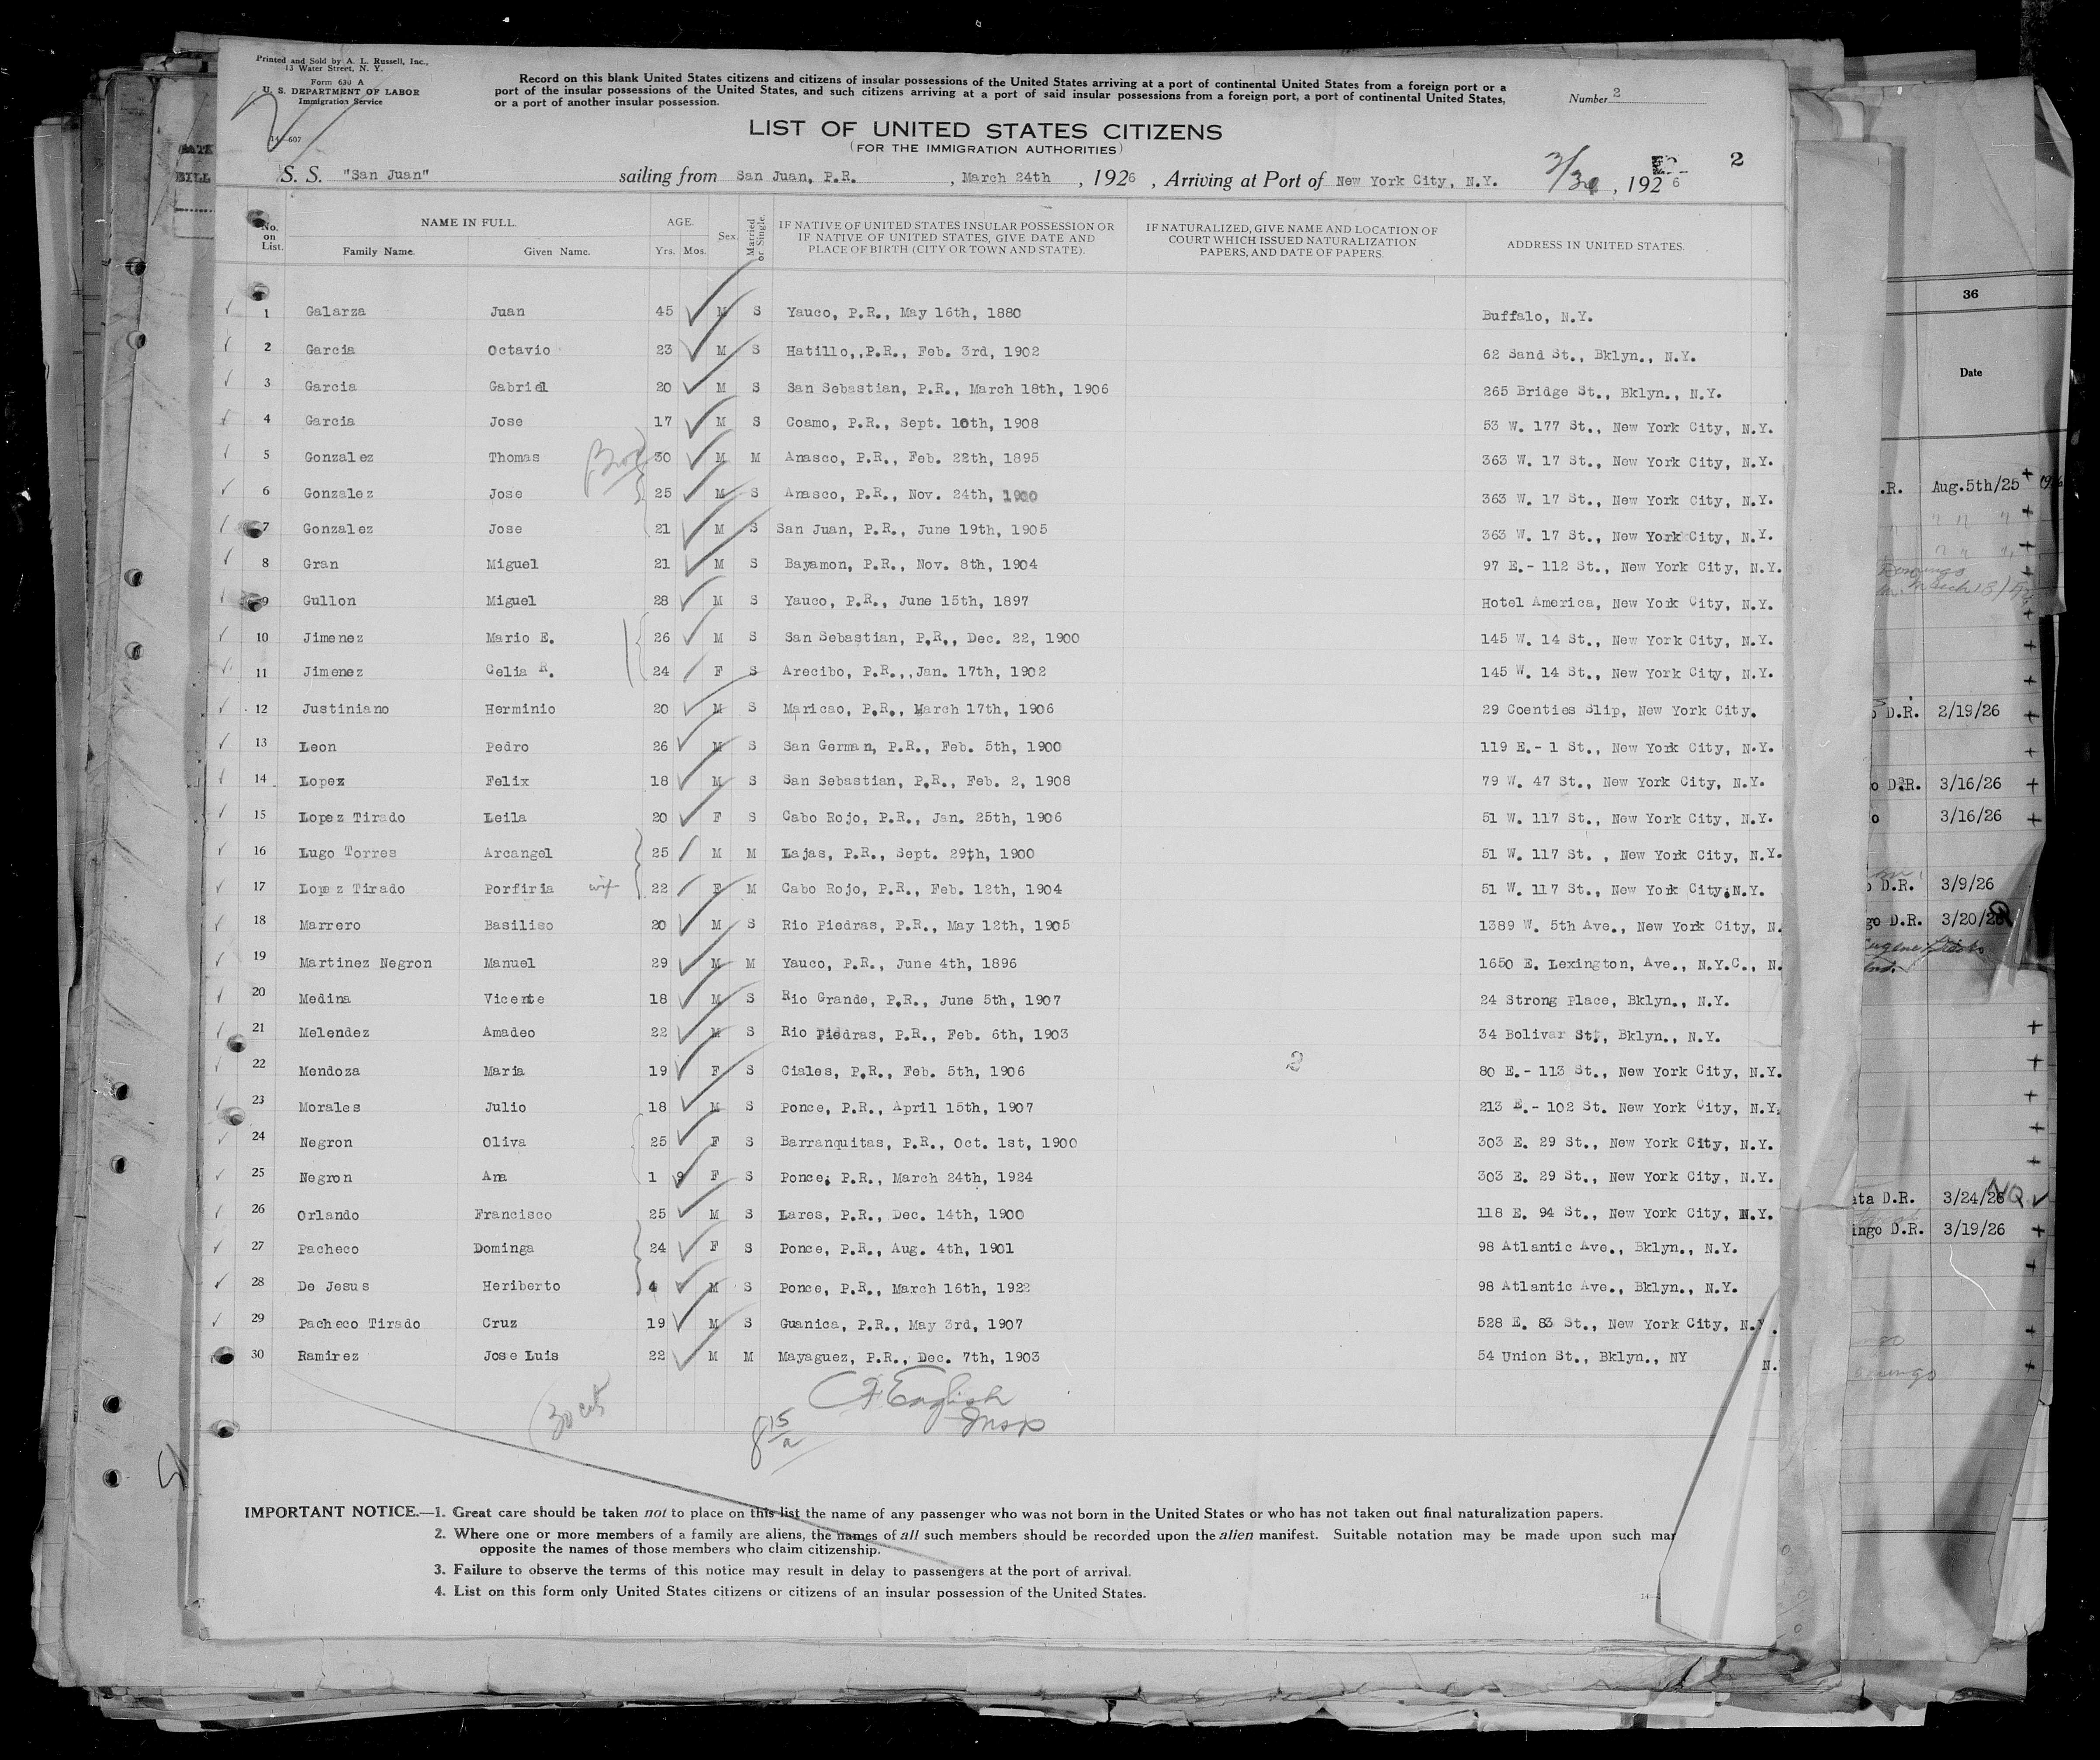 Printed and Sold by A. L. Russell, Inc.,
13 Water Street, N. Y.
Form 630 A
U. S. DEPARTMENT OF LABOR
Immigration Service
14—607
Record on this blank United States citizens and citizens of insular possessions of the United States arriving at a port of continental United States from a foreign port or a
port of the insular possessions of the United States, and such citizens arriving at a port of said insular possessions from a foreign port, a port of continental United States,
or a port of another insular possession.
Number 2
LIST OF UNITED STATES CITIZENS
(FOR THE IMMIGRATION AUTHORITIES)
2
S. S. "San Juan" sailing from San Juan, P.R. , March 24th , 1926 , Arriving at Port of New York City, N.Y. 3/30 , 1926
No. on List. NAME IN FULL. AGE. Sex. Married or Single. IF NATIVE OF UNITED STATES INSULAR POSSESSION OR IF NATIVE OF UNITED STATES, GIVE DATE AND PLACE OF BIRTH (CITY OR TOWN AND STATE). IF NATURALIZED, GIVE NAME AND LOCATION OF COURT WHICH ISSUED NATURALIZATION PAPERS, AND DATE OF PAPERS. ADDRESS IN UNITED STATES.
Family Name. Given Name. Yrs. Mos.
1 Galarza Juan 45 M S Yauco, P.R., May 16th, 1880 Buffalo, N.Y.
2 Garcia Octavio 23 M S Hatillo,,P.R., Feb. 3rd, 1902 62 Sand St., Bklyn., N.Y.
3 Garcia Gabriel 20 M S San Sebastian, P.R., March 18th, 1906 265 Bridge St., Bklyn., N.Y.
4 Garcia Jose 17 M S Coamo, P.R., Sept. 10th, 1908 53 W. 177 St., New York City, N.Y.
5 Gonzalez Thomas 30 M M Anasco, P.R., Feb. 22th, 1895 363 W. 17 St., New York City, N.Y.
6 Gonzalez Jose 25 M S Anasco, P.R., Nov. 24th, 1900 363 W. 17 St., New York City, N.Y.
7 Gonzalez Jose 21 M S San Juan, P.R., June 19th, 1905 363 W. 17 St., New York City, N.Y.
8 Gran Miguel 21 M S Bayamon, P.R., Nov. 8th, 1904 97 E.- 112 St., New York City, N.Y.
9 Gullon Miguel 28 M S Yauco, P.R., June 15th, 1897 Hotel America, New York City, N.Y.
10 Jimenez Mario E. 26 M S San Sebastian, P.R., Dec. 22, 1900 145 W. 14 St., New York City, N.Y.
11 Jimenez Celia R. 24 F S Arecibo, P.R.,,Jan. 17th, 1902 145 W. 14 St., New York City, N.Y.
12 Justiniano Herminio 20 M S Maricao, P.R., March 17th, 1906 29 Coenties Slip, New York City.
13 Leon Pedro 26 M S San German, P.R., Feb. 5th, 1900 119 E.- 1 St., New York City, N.Y.
14 Lopez Felix 18 M S San Sebastian, P.R., Feb. 2, 1908 79 W. 47 St., New York City, N.Y.
15 Lopez Tirado Leila 20 F S Cabo Rojo, P.R., Jan. 25th, 1906 51 W. 117 St., New York City, N.Y.
16 Lugo Torres Arcangel 25 M M Lajas, P.R., Sept. 29th, 1900 51 W. 117 St. , New York City, N.Y.
17 Lopez Tirado Porfiria wif 22 F M Cabo Rojo, P.R., Feb. 12th, 1904 51 W. 117 St., New York City, N.Y.
18 Marrero Basiliso 20 M S Rio Piedras, P.R., May 12th, 1905 1389 W. 5th Ave., New York City, N.
19 Martinez Negron Manuel 29 M M Yauco, P.R., June 4th, 1896 1650 E. Lexington, Ave., N.Y.C., N.
20 Medina Vicente 18 M S Rio Grande, P.R., June 5th, 1907 24 Strong Place, Bklyn., N.Y.
21 Melendez Amadeo 22 M S Rio Piedras, P.R., Feb. 6th, 1903 34 Bolivar St., Bklyn., N.Y.
22 Mendoza Maria 19 F S Ciales, P.R., Feb. 5th, 1906 2 80 E.- 113 St., New York City, N.Y.
23 Morales Julio 18 M S Ponce, P.R., April 15th, 1907 213 E.- 102 St. New York City, N.Y.
24 Negron Oliva 25 F S Barranquitas, P.R., Oct. 1st, 1900 303 E. 29 St., New York City, N.Y.
25 Negron Ana 1 9 F S Ponce, P.R., March 24th, 1924 303 E. 29 St., New York City, N.Y.
26 Orlando Francisco 25 M S Lares, P.R., Dec. 14th, 1900 118 E. 94 St., New York City, N.Y.
27 Pacheco Dominga 24 F S Ponce, P.R., Aug. 4th, 1901 98 Atlantic Ave., Bklyn., N.Y.
28 De Jesus Heriberto 4 M S Ponce, P.R., March 16th, 1922 98 Atlantic Ave., Bklyn., N.Y.
29 Pacheco Tirado Cruz 19 M S Guanica, P.R., May 3rd, 1907 528 E. 83 St., New York City, N.Y.
30 Ramirez Jose Luis 22 M M Mayaguez, P.R., Dec. 7th, 1903 54 Union St., Bklyn., NY N.
30 cits
English
Insp
8 15/a
IMPORTANT NOTICE.—1. Great care should be taken not to place on this list the name of any passenger who was not born in the United States or who has not taken out final naturalization papers.
2. Where one or more members of a family are aliens, the names of all such members should be recorded upon the alien manifest. Suitable notation may be made upon such mar
opposite the names of those members who claim citizenship.
3. Failure to observe the terms of this notice may result in delay to passengers at the port of arrival.
4. List on this form only United States citizens or citizens of an insular possession of the United States.
14—
36
Date
.R. Aug.5th/25
March 18/26
D.R. 2/19/26
o D.R. 3/16/26
o 3/16/26
D.R. 3/9/26
go D.R. 3/20/26
ata D.R. 3/24/26 NQ
ingo D.R. 3/19/26
BILL